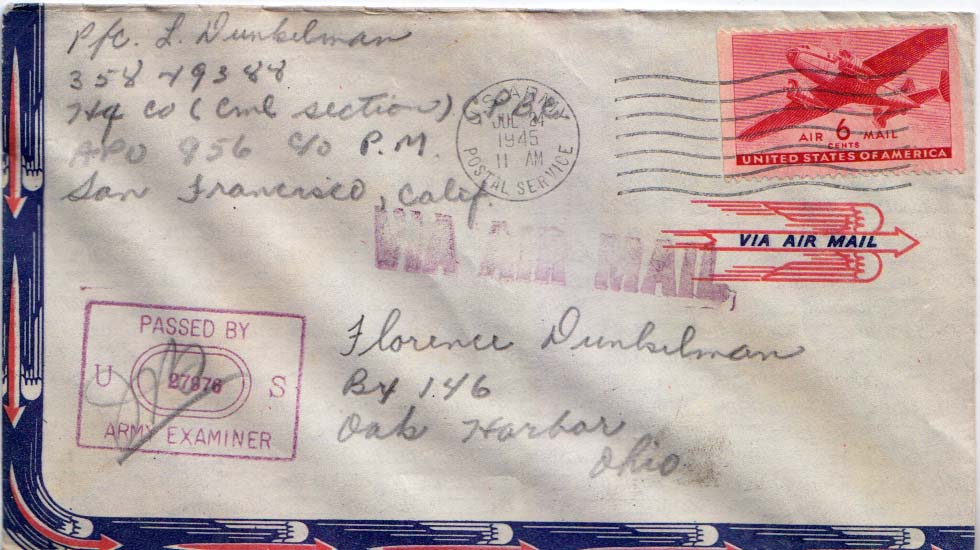 Pfc. L. Dunkelman
35849388
Hq Co (Cml section) C.P.B.C.
APO 956 c/o P.M.
San Francisco, Calif.
U.S. ARMY
JUL 24
1945
11 AM
POSTAL SERVICE
AIR 6 MAIL
CENTS
UNITED STATES OF AMERICA
VIA AIR MAIL
VIA AIR MAIL
PASSED BY
U 27876 S
ARMY EXAMINER
Florence Dunkelman
Bx 146
Oak Harbor
Ohio